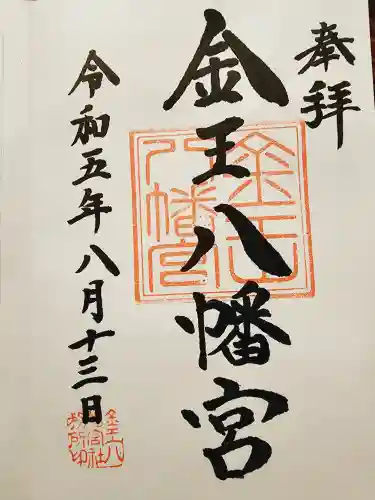 奉拝
金王八幡宮
令和五年八月十三日
金王八幡宮